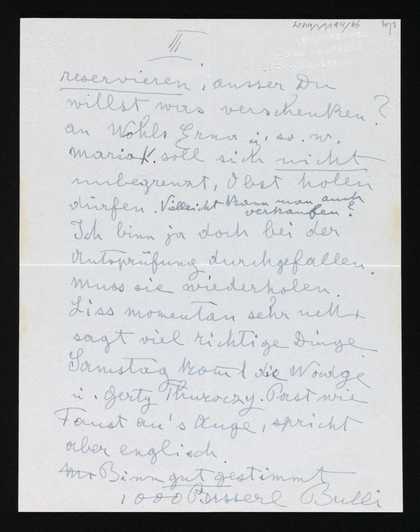 III
reservieren, ausser Du
willst was verschenken?
an Wohls Erna u. s. w.
Maria soll sich nicht
unbegrenzt, Obst holen
dürfen. Villeicht kann man auch
verkaufen?
Ich binn ja doch bei der
Autoprüfung durchgefallen.
Muss sie wiederholen.
Liss momentan sehr nett
sagt viel richtige Dinge
Samstag komt die
u. Gerty Thuroczy. Past wie
Faust au's Auge, spricht
aber englisch
Binn gut gestimmt
1000 Busserl Bulli